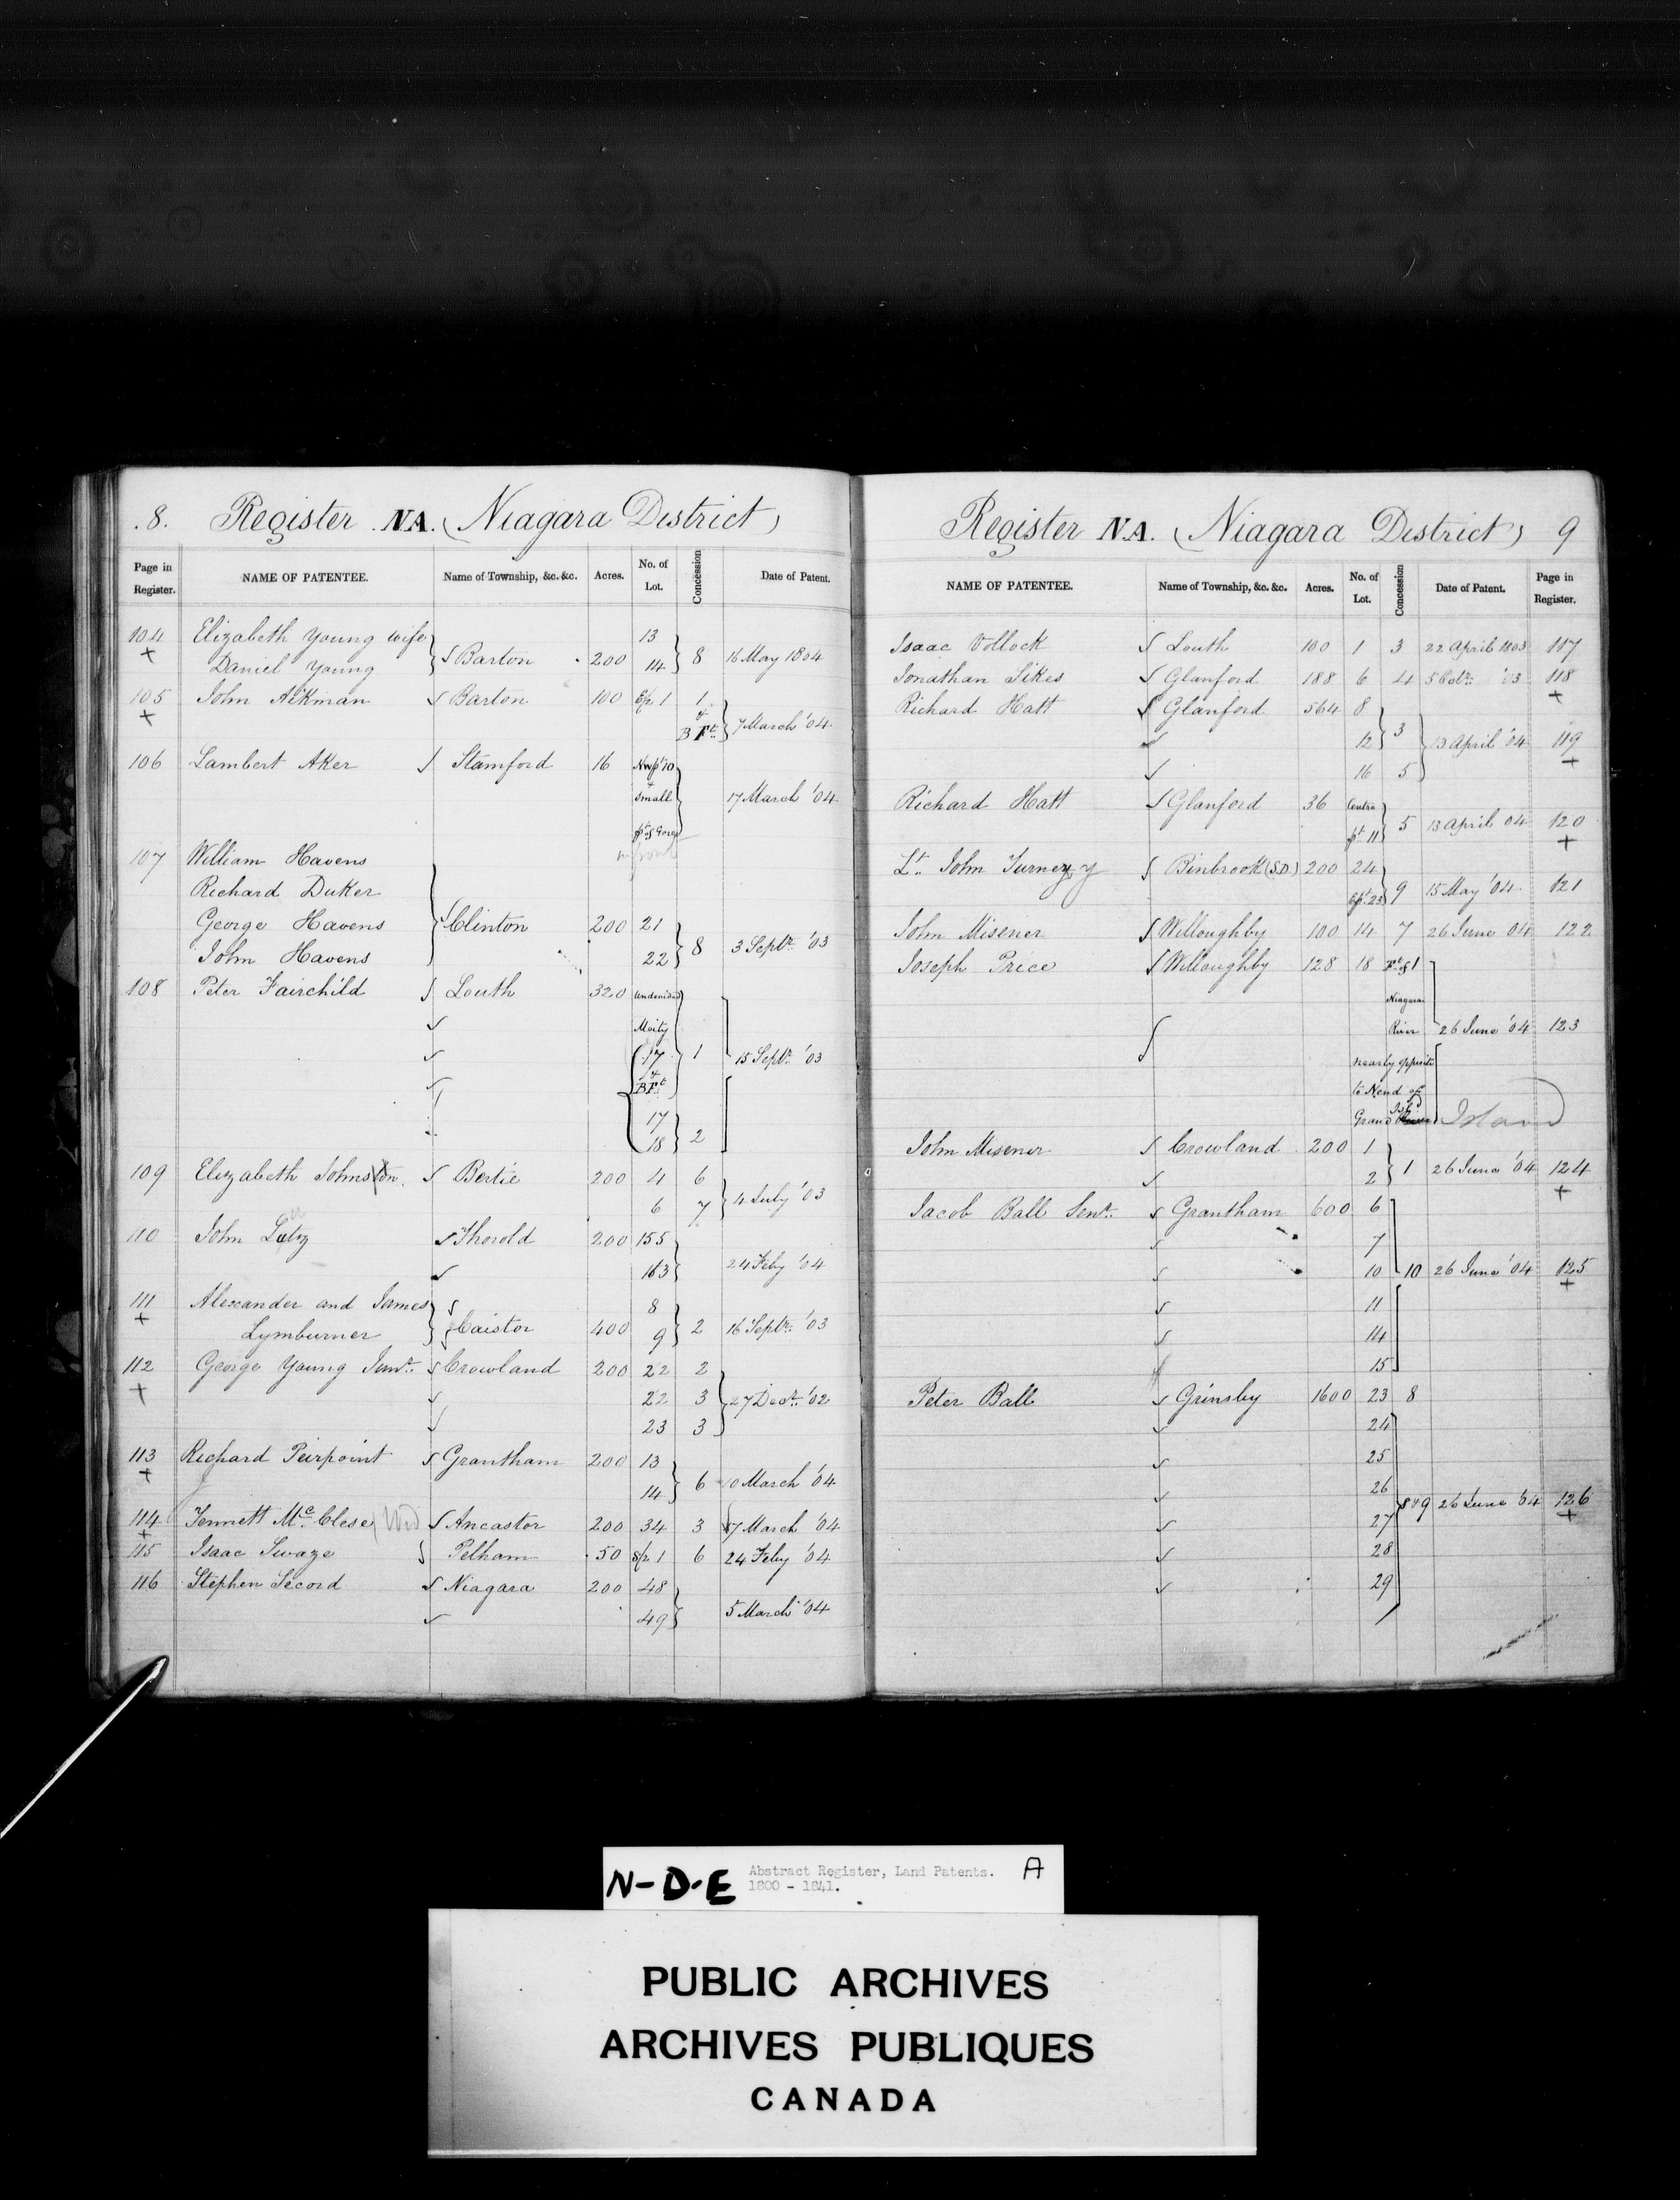 .8. Register NA. (Niagara District)
Page in Register. NAME OF PATENTEE. Name of Township, &c. &c. Acres. No. of Lot. Concession Date of Patent.
104 Elizabeth Young wife 13
+ Daniel Young Barton 200 14 8 16 May 1804
105 John Aikman Barton 100 1 1
+ & B Ft 7 March '04
106 Lambert Aker Stamford 16 10
& small 17 March '04
pt of Gore
in front
107 William Havens
Richard Duker
George Havens Clinton 200 21
John Havens 22 8 3 Septr. '03
108 Peter Fairchild Louth 320 undivided
Moity
17 1 15 Septr. '03
& B.Ft
17
18 2
109 Elizabeth Johnston. Bertie 200 4 6
6 7 4 July '03
110 John Lutz Thorold 200 155
163 24 Feby '04
111 Alexander and James 8
+ Lymburner Caistor 400 9 2 16 Septr. '03
112 George Young Junr. Crowland 200 22 2
+ 22 3 27 Decr. '02
23 3
113 Richard Pierpoint Grantham 200 13
+ 14 6 10 March '04
114 Jennett Mc.Clese Wid Ancaster 200 34 3 17 March '04
+
115 Isaac Swaze Pelham 50 1 6 24 Feby '04
116 Stephen Secord Niagara 200 48
49 5 March '04
Register N.A. (Niagara District) 9
NAME OF PATENTEE. Name of Township, &c. &c. Acres. No. of Lot. Concession Date of Patent. Page in Register.
Isaac Vollock Louth 100 1 3 22 April 1803 117
Jonathan Sikes Glanford 188 6 4 5 Octr. '03 118
+
Richard Hatt Glanford 564 8
12 3 13 April '04 119
16 5 +
Richard Hatt Glanford 36 Centre
pt 11 5 13 April 04 120
+
Lt. John Turney Binbrook (S.D.) 200 24
23 9 15 May '04 121
John Misener Willoughby 100 14 7 26 June 04 122
Joseph Price Willoughby 128 18
Niagara
River 26 June '04 123
nearly opposite
to N end of
Grand Isld Island
John Misener Crowland 200 1
2 1 26 June '04 124
+
Jacob Ball Senr. Grantham 600 6
7
10 10 26 June '04 125
+
11
14
15
Peter Ball Grimsby 1600 23 8
24
25
26
8 & 9 26 June '04 126
27 +
28
29
N-D-E Abstract Register, Land Patents. A
1800 - 1841.
PUBLIC ARCHIVES
ARCHIVES PUBLIQUES
CANADA